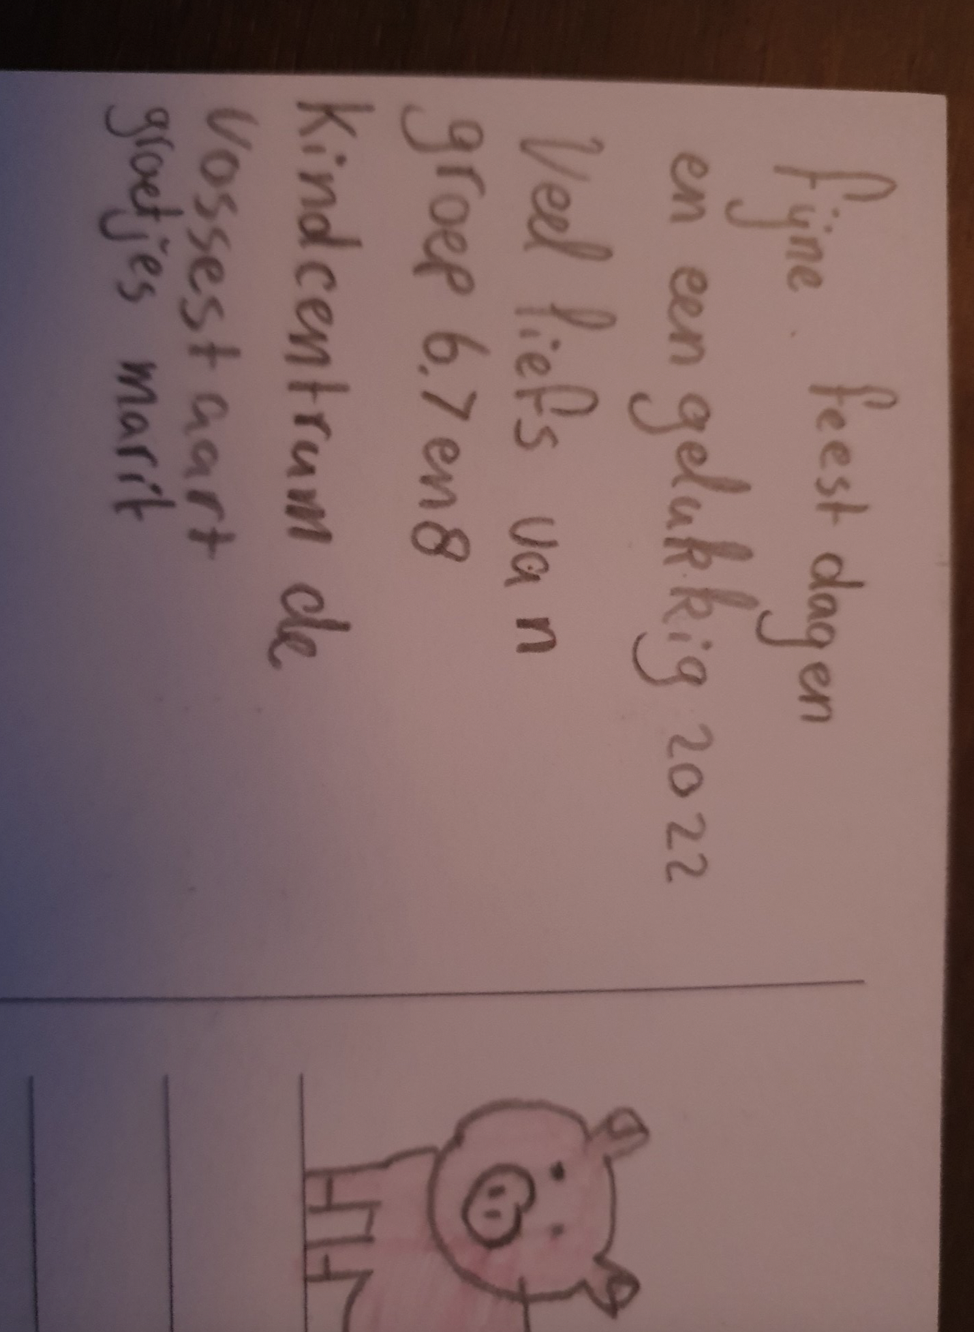 fijne feest dagen
en een gelukkig 2022
Veel liefs van
groep 6.7 en 8
Kindcentrum de
Vossestaart
groetjes marit